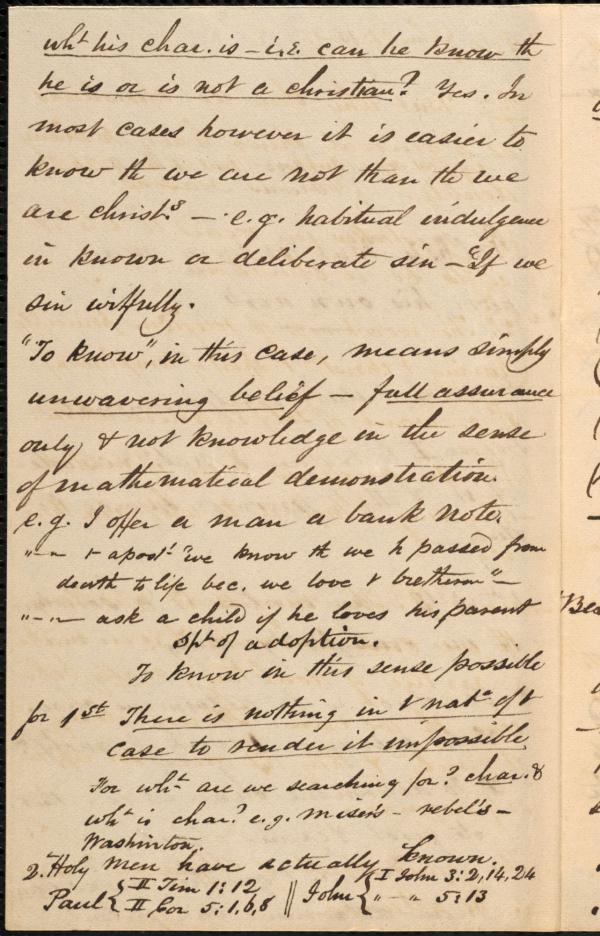 wht his char. is – i.e. can he know th
he is or is not a christian? Yes. In
most cases however it is easier to
know th we are not than th we
are christs – e.g. habitual indulgence
in known or deliberate sin – "If we
sin wilfully.
"To know", in this case, means simply
unwavering belief – full assurance
only & not knowledge in the sense
of mathematical demonstration.
e.g. I offer a man a bank note.
"–" t apost: "we know th we h passed from
death to life bec. we love t bretheren" –
"–"– ask a child if he loves his parent
Spt of adoption.
To know in this sense possible
for 1st There is nothing in t nate of t
case to render it impossible
For wht are we searching for? char. &
wht is char? e.g. miser's – rebel's –
Washinton.
2. Holy men have actually known.
Paul { II Tim 1:12 || John { I John 3:2,14,24
II Cor 5:1,6,8 " – " 5:13